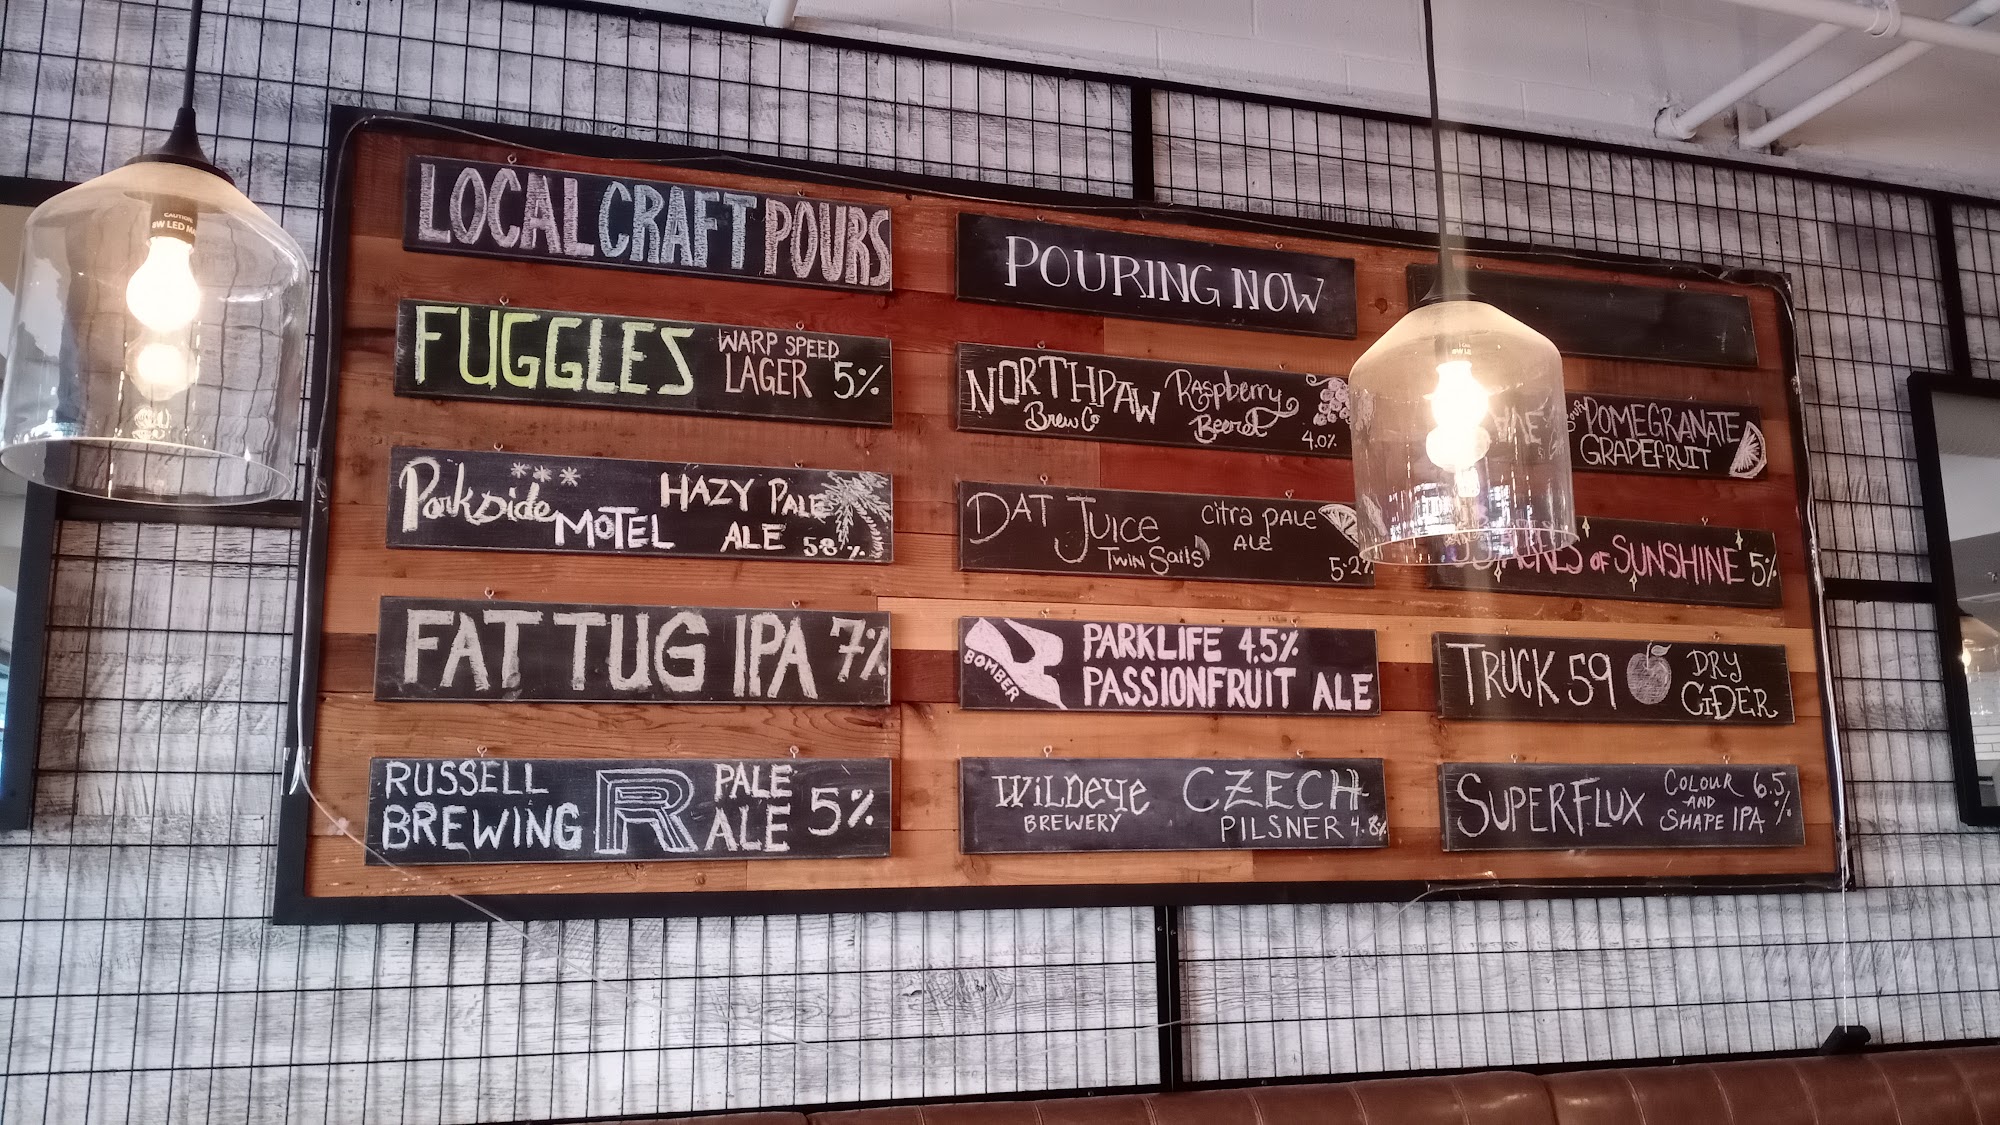 LOCAL CRAFT POURS
FUGGLES WARP SPEED
LAGER 5%
Parkside MOTEL HAZY PALE
ALE 5.8%
FAT TUG IPA 7%
RUSSELL
BREWING R PALE
ALE 5%
POURING NOW
NORTHPAW
Brew Co
Raspberry
Beeret
4.0%
DAT JUICE
Twin Sails
Citra Pale
ALE
5.2%
BOMBER
PARKLIFE 4.5%
PASSIONFRUIT ALE
WiLDeye
BREWERY
CZECH
PILSNER 4.8%
POMEGRANATE
GRAPEFRUIT
ACRES OF SUNSHINE 5%
TRUCK 59
DRY
CiDER
SUPERFLUX
COLOUR 6.5%
AND
SHAPE IPA
CAUTION
8W LED